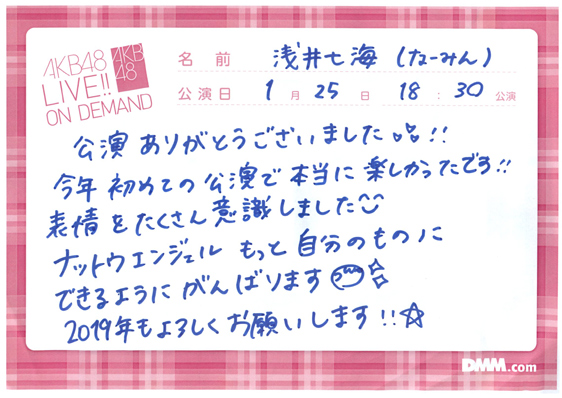 AKB48
LIVE!!
ON DEMAND
AKB
48
名 前 浅井七海 (なーみん)
公演日 1月25日 18:30公演
公演 ありがとうございました!!
今年 初めての 公演で 本当に 楽しかったです!!
表情 をたくさん 意識しました
ナットウエンジェル もっと 自分のものに
できるように がんばります
2019年もよろしくお願いします!!☆
DMM.com